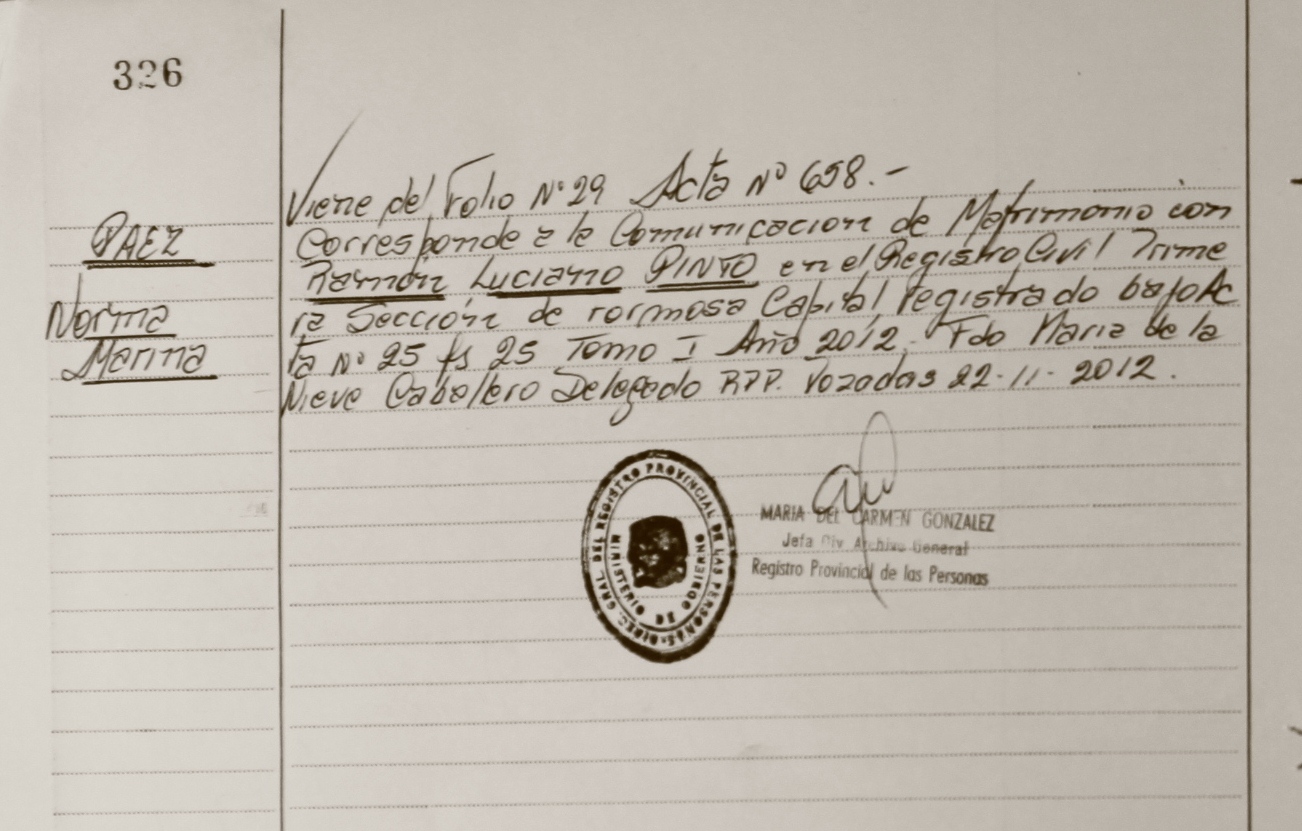 326
Viene del Folio Nº 29 Acta Nº 658.-
PAEZ
Norma
Marina
Corresponde a la Comunicacion de Matrimonio con
Ramón Luciano PINTO en el Registro Civil Prime
ra Sección de Formosa Capital, registrado bajo Ac
ta Nº 25 fs 25 Tomo I Año 2012. Fdo Maria de la
Nieve Cabalero Delegado RPP. Pozadas 22-11-2012.
DIREC. GRAL. DEL REGISTRO PROVINCIAL DE LAS PERSONAS
MINISTERIO DE GOBIERNO
MARIA DEL CARMEN GONZALEZ
Jefa Div Archivo General
Registro Provincial de las Personas